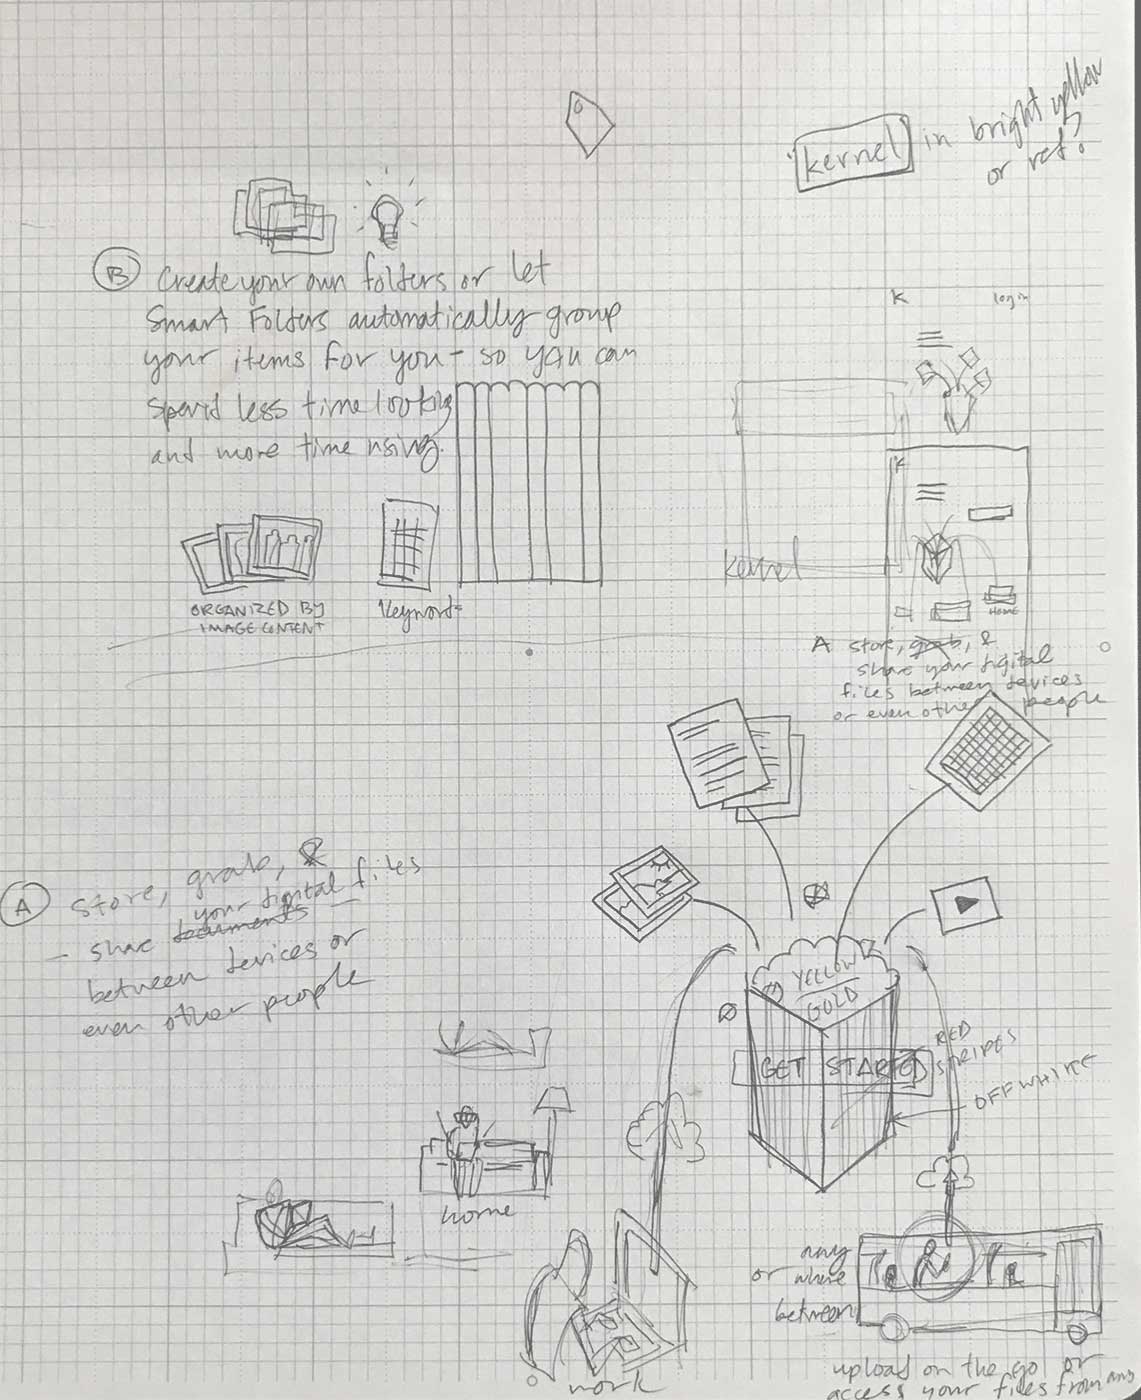 kernel in bright yellow
or red?
B Create your own folders or let
Smart Folders automatically group
your items for you - so you can
spend less time looking
and more time using.
K login
K
HOME
kernel
ORGANIZED BY
IMAGE CONTENT
Keyword
A store, grab, &
share your digital
files between devices
or even other people
A store, grab, &
your digital files
- share documents
between devices or
even other people
YELLOW
GOLD
GET STARTED
RED
STRIPES
OFF WHITE
home
any
or where
between
work
upload on the go or
access your files from any